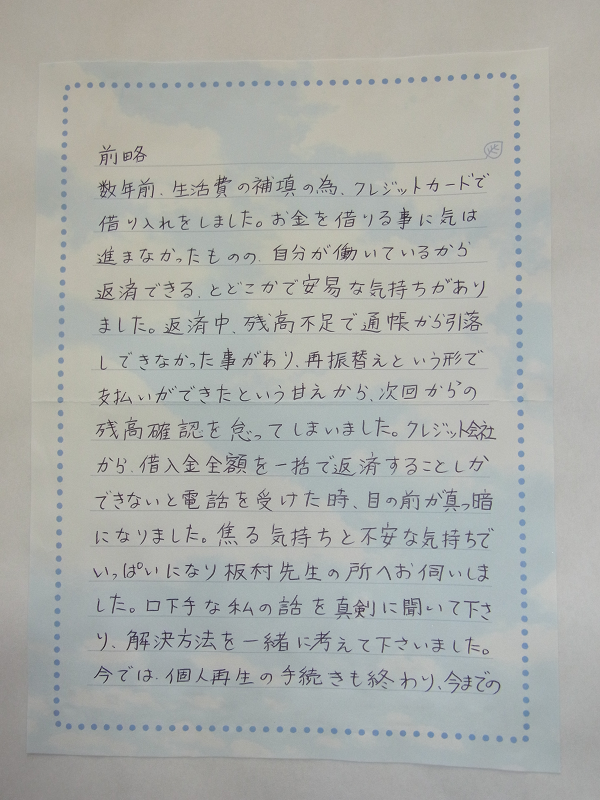 前略
数年前、生活費の補填の為、クレジットカードで
借り入れをしました。お金を借りる事に気は
進まなかったものの、自分が働いているから
返済できる、とどこかで安易な気持ちがあり
ました。返済中、残高不足で通帳から引落
しできなかった事があり、再振替えという形で
支払いができたという甘えから、次回からの
残高確認を怠ってしまいました。クレジット会社
から、借入金全額を一括で返済することしか
できないと電話を受けた時、目の前が真っ暗
になりました。焦る気持ちと不安な気持ちで
いっぱいになり板村先生の所へお伺いしま
した。口下手な私の話を真剣に聞いて下さ
り、解決方法を一緒に考えて下さいました。
今では、個人再生の手続きも終わり、今までの